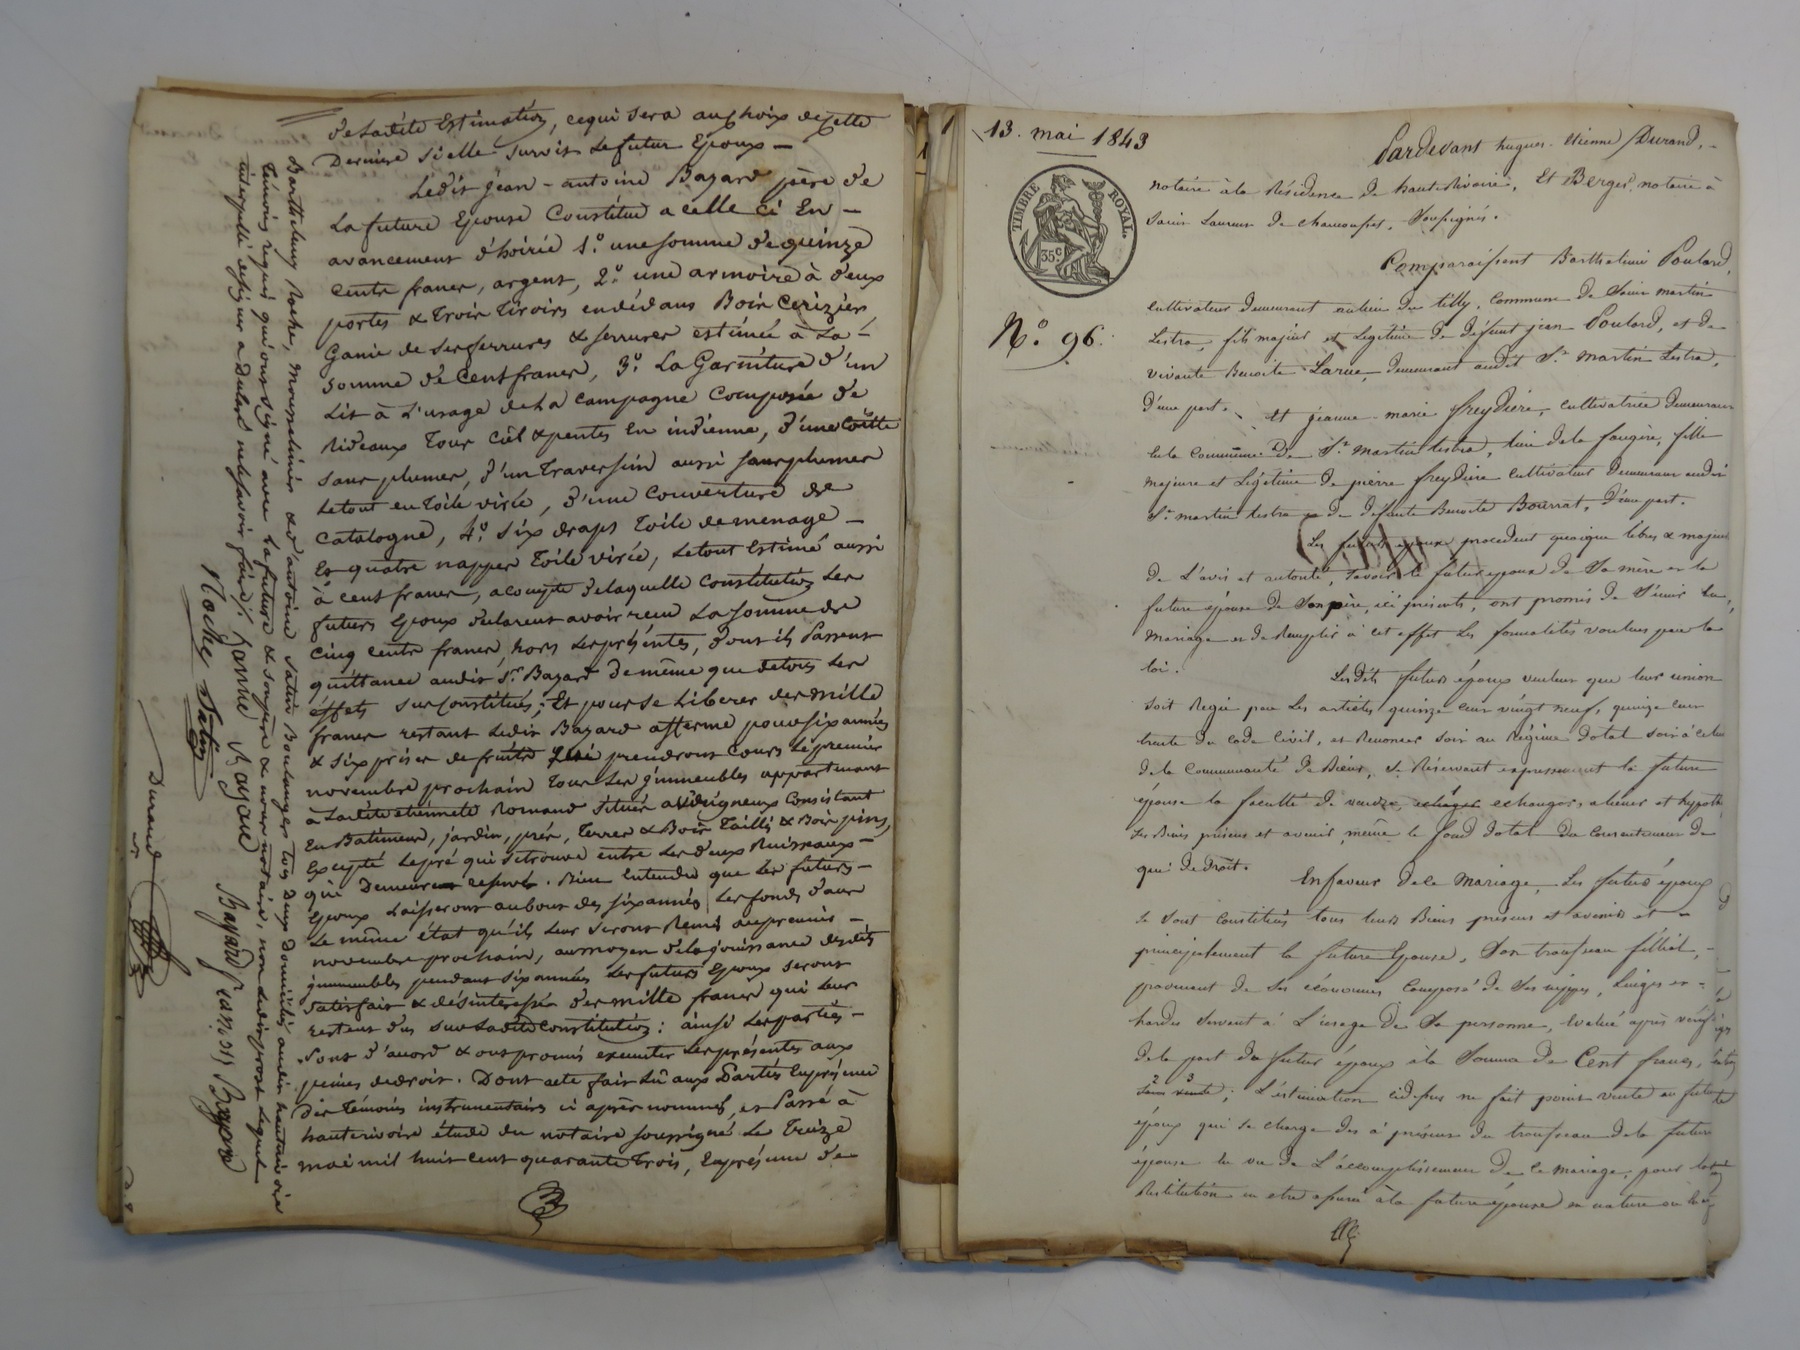 de ladite Estimation, cequi sera auchoix decette
Derniere si elle survit le futur Epoux –
Ledit jean-antoine Bazard père de
La future Epouse Constitue a celle ci En –
avancement d'hoirie 1.° une somme de quinze
cents francs, argent, 2.° une armoire à deux
portes & trois tiroirs endedans Bois Cerizier,
Garnie de ses ferrures & serrures estimée à La –
somme de Cent francs, 3.° La Garniture d'un
Lit à L'usage de La campagne Composée de
Rideaux tour Ciel & pentes En indienne, d'une Coëtte
sans plumes, d'un Traversin aussi sans plumes
Letout en toile virée, d'une Couverture de
Catalogne, 4.° six draps toile de menage –
Et quatre nappes toile virée, Letout Estimé aussi
à cent francs, acompte delaquelle Constitution Les
futurs Epoux déclarent avoir reçu La Somme de
Cinq cents francs, hors les présentes, dont ils Passent
quittance audit S.r Bazard de même que detous Les
effets sus Constitués; Et pour se Liberer des mille
francs restant Ledit Bazard afferme pour six années
& six prises de fruits qui prendront Cours Le premier
novembre prochain tous Les immeubles appartenant
a Ladite etiennette Romand situés a Consistant
En Batiment, jardin, prés, Terres & Bois Taillis & Bois pins,
Excepté Le pré qui se trouve entre Les deux Ruisseaux –
qui Demeure reservé. Bien Entendu que Les futurs –
Epoux Laisseront au bout des six années Les fonds dans
Le même état qu'ils Leur seront Remis au premier –
novembre prochain, au moyen de la jouissance desdits
immeubles pendant six années Les futurs Epoux seront
satisfaits & désintéressés des mille francs qui Leur
restent dus sur Ladite Constitution: ainsi Les parties –
sont d'accord & ont promis executer Les présentes aux
peines de droit. Dont acte fait Lû aux Parties En présence
Des témoins instrumentaires ci après nommés, et Passé à
hauterivoire étude du notaire soussigné Le Treize
mai mil huit cent quarante trois, En présence de
Barthelemy Roche, Mousselinier & d'antoine Satin Boulanger tous Deux domiciliés audit hauterivoire
témoins requis qui ont signé avec La future & son père & nous notaire, non Ledit Lequel
interpellé designer a Declaré ne le savoir faire
Roche Satin Bazard francois Bazard
Durand
13. mai 1843
TIMBRE ROYAL.
35.c
N.° 96.
Pardevant hugues-Etienne Durand, –
notaire à la Résidence de haute Rivoire, Et Berger, notaire à
Saint Laurent de chamousset, Soussignés.
Comparaissent Barthelemi Poulard,
cultivateur demeurant au lieu du tilly, Commune de Saint martin
Lestra, fils majeur et Légitime de défunt jean Poulard, et de
vivante Benoite Larue, demeurant audit S.t martin Lestra,
d'une part. Et jeanne marie freydiere, cultivatrice demeurant
en la Commune De S.t Martin Lestra, lieu de la fougère, fille
majeure et Légitime de pierre freydiere cultivateur Demeurant audit
S.t martin Lestra & de defunte Benoite Bourrat, D'autre part.
Les futurs epoux procedent quoique libres & majeurs
de L'avis et autorité, savoir le futur epoux de Sa mère et la
future épouse de Son père, ici présents, ont promis de s'unir en
Mariage et de Remplir à cet effet Les formalités voulues par la
loi.
Lesdits futurs époux veulent que leur union
soit Regie par Les articles quinze cent vingt neuf, quinze cent
trente du Code Civil, et Renoncer soit au Régime Dotal soit à celui
de la Communauté De Biens, se Réservant expressement la future
épouse la faculté de vendre, echanger, aliener et hypoth
ses Biens présens et avenir, même le fond dotal du Consentement de
qui De droit.
En faveur de ce Mariage, Les futurs époux
se sont Constitués tous leurs Biens présens et avenir et –
principalement la future Epouse, Son trousseau filliel, –
provenant de Ses économies Composé de Ses nippes, Linges et –
hardes servant à L'usage De Sa personne, Evalué après vérif
de la part du futur époux à la Somme De Cent francs,
2 3
; L'estimation cidessus ne fait point vente au futur
époux qui se charge dès à présent du trousseau de la future
épouse en vue de L'accomplissement de ce mariage, pour la
Restitution en etre assuré à la future épouse en nature ou